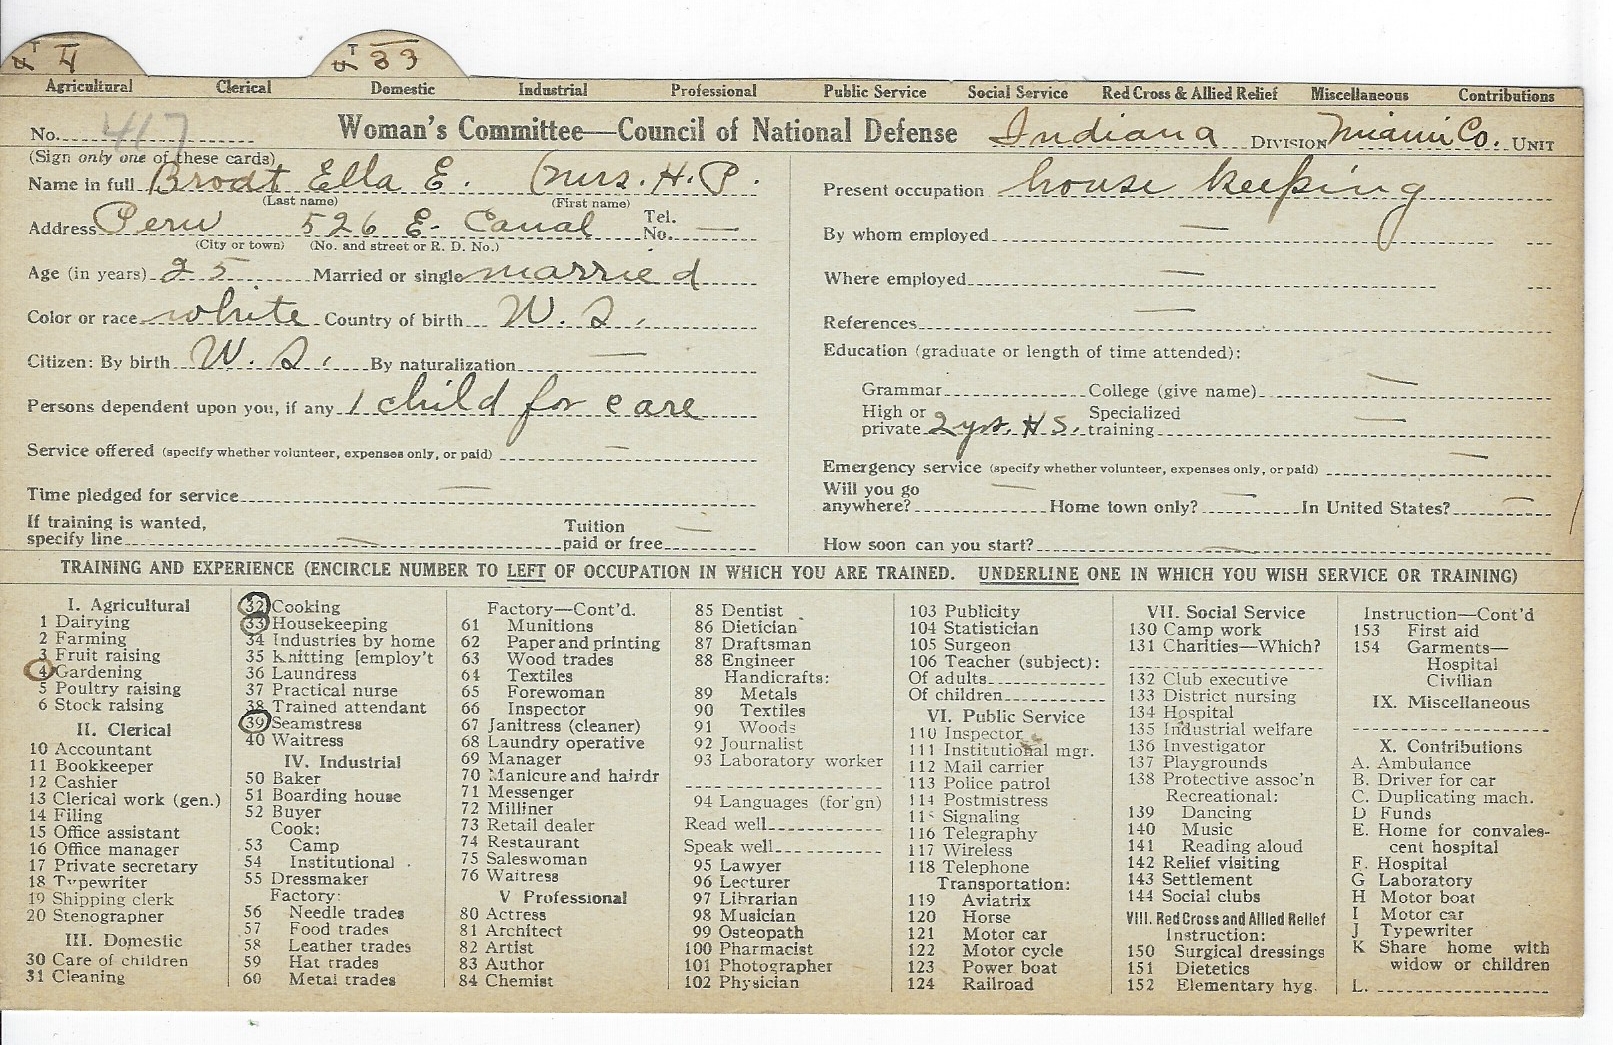 T 4 T 33
Agricultural Clerical Domestic Industrial Professional Public Service Social Service Red Cross & Allied Relief Miscellaneous Contributions
No. 417 Woman's Committee—Council of National Defense Indiana DIVISION Miami Co. UNIT
(Sign only one of these cards)
Name in full Brodt Ella E. (Mrs. H. P.
(Last name) (First name)
Address Peru 526 E. Canal Tel. No. —
(City or town) (No. and street or R. D. No.)
Age (in years) 25 Married or single married
Color or race white Country of birth U. S.
Citizen: By birth U. S. By naturalization —
Persons dependent upon you, if any 1 child for care
Service offered (specify whether volunteer, expenses only, or paid) —
Time pledged for service —
If training is wanted, specify line — Tuition paid or free —
Present occupation house keeping
By whom employed —
Where employed —
References —
Education (graduate or length of time attended):
Grammar College (give name) —
High or private 2 yrs. H S. Specialized training —
Emergency service (specify whether volunteer, expenses only, or paid) —
Will you go anywhere? — Home town only? — In United States? —
How soon can you start? —
TRAINING AND EXPERIENCE (ENCIRCLE NUMBER TO LEFT OF OCCUPATION IN WHICH YOU ARE TRAINED. UNDERLINE ONE IN WHICH YOU WISH SERVICE OR TRAINING)
I. Agricultural
1 Dairying
2 Farming
3 Fruit raising
4 Gardening
5 Poultry raising
6 Stock raising
II. Clerical
10 Accountant
11 Bookkeeper
12 Cashier
13 Clerical work (gen.)
14 Filing
15 Office assistant
16 Office manager
17 Private secretary
18 Typewriter
19 Shipping clerk
20 Stenographer
III. Domestic
30 Care of children
31 Cleaning
32 Cooking
33 Housekeeping
34 Industries by home
35 Knitting [employ't
36 Laundress
37 Practical nurse
38 Trained attendant
39 Seamstress
40 Waitress
IV. Industrial
50 Baker
51 Boarding house
52 Buyer
Cook:
53 Camp
54 Institutional
55 Dressmaker
Factory:
56 Needle trades
57 Food trades
58 Leather trades
59 Hat trades
60 Metal trades
Factory—Cont'd.
61 Munitions
62 Paper and printing
63 Wood trades
64 Textiles
65 Forewoman
66 Inspector
67 Janitress (cleaner)
68 Laundry operative
69 Manager
70 Manicure and hairdr
71 Messenger
72 Milliner
73 Retail dealer
74 Restaurant
75 Saleswoman
76 Waitress
V Professional
80 Actress
81 Architect
82 Artist
83 Author
84 Chemist
85 Dentist
86 Dietician
87 Draftsman
88 Engineer
Handicrafts:
89 Metals
90 Textiles
91 Woods
92 Journalist
93 Laboratory worker
94 Languages (for'gn)
Read well
Speak well
95 Lawyer
96 Lecturer
97 Librarian
98 Musician
99 Osteopath
100 Pharmacist
101 Photographer
102 Physician
103 Publicity
104 Statistician
105 Surgeon
106 Teacher (subject):
Of adults
Of children
VI. Public Service
110 Inspector
111 Institutional mgr.
112 Mail carrier
113 Police patrol
114 Postmistress
115 Signaling
116 Telegraphy
117 Wireless
118 Telephone
Transportation:
119 Aviatrix
120 Horse
121 Motor car
122 Motor cycle
123 Power boat
124 Railroad
VII. Social Service
130 Camp work
131 Charities—Which?
132 Club executive
133 District nursing
134 Hospital
135 Industrial welfare
136 Investigator
137 Playgrounds
138 Protective assoc'n
Recreational:
139 Dancing
140 Music
141 Reading aloud
142 Relief visiting
143 Settlement
144 Social clubs
VIII. Red Cross and Allied Relief
Instruction:
150 Surgical dressings
151 Dietetics
152 Elementary hyg.
Instruction—Cont'd
153 First aid
154 Garments—
Hospital
Civilian
IX. Miscellaneous
X. Contributions
A. Ambulance
B. Driver for car
C. Duplicating mach.
D Funds
E. Home for convales-
cent hospital
F. Hospital
G Laboratory
H Motor boat
I Motor car
J Typewriter
K Share home with
widow or children
L.